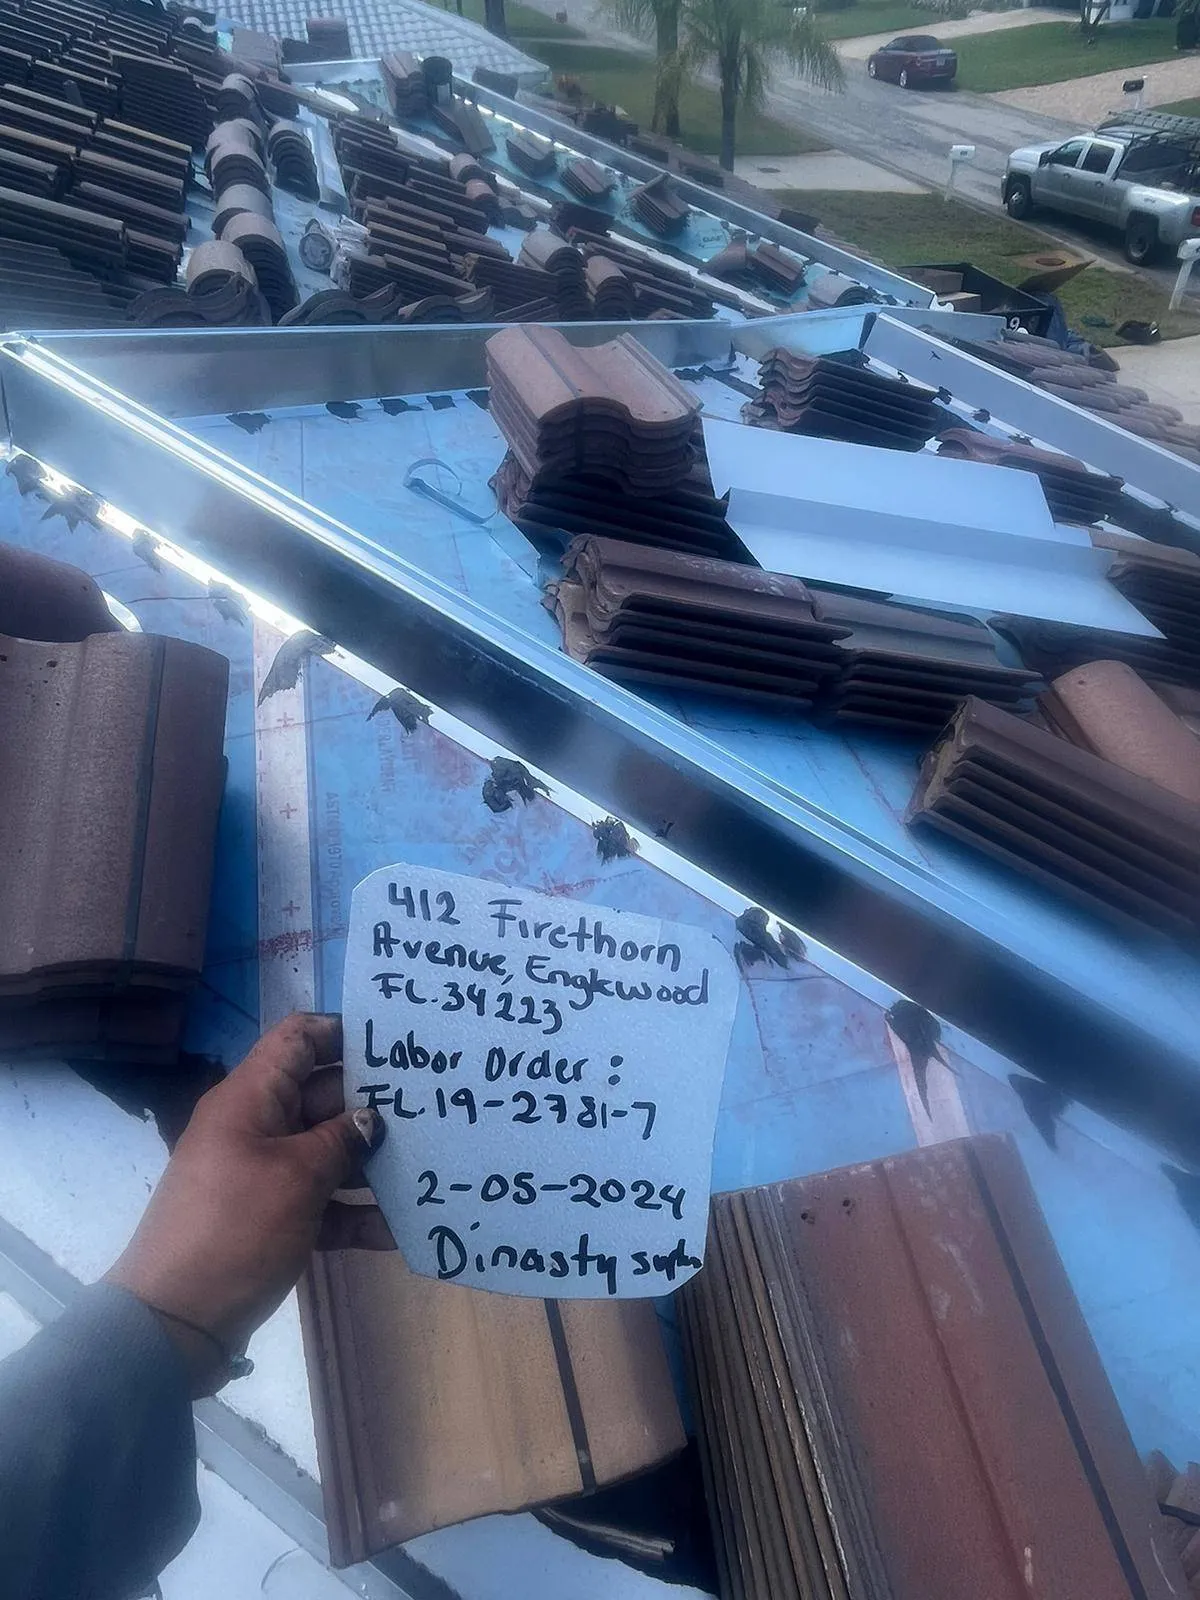 412 Firethorn
Avenue, Englewood
FL. 34223
Labor order :
FL. 19-2781-7
2-05-2024
Dinasty
ASTM D1970/
9